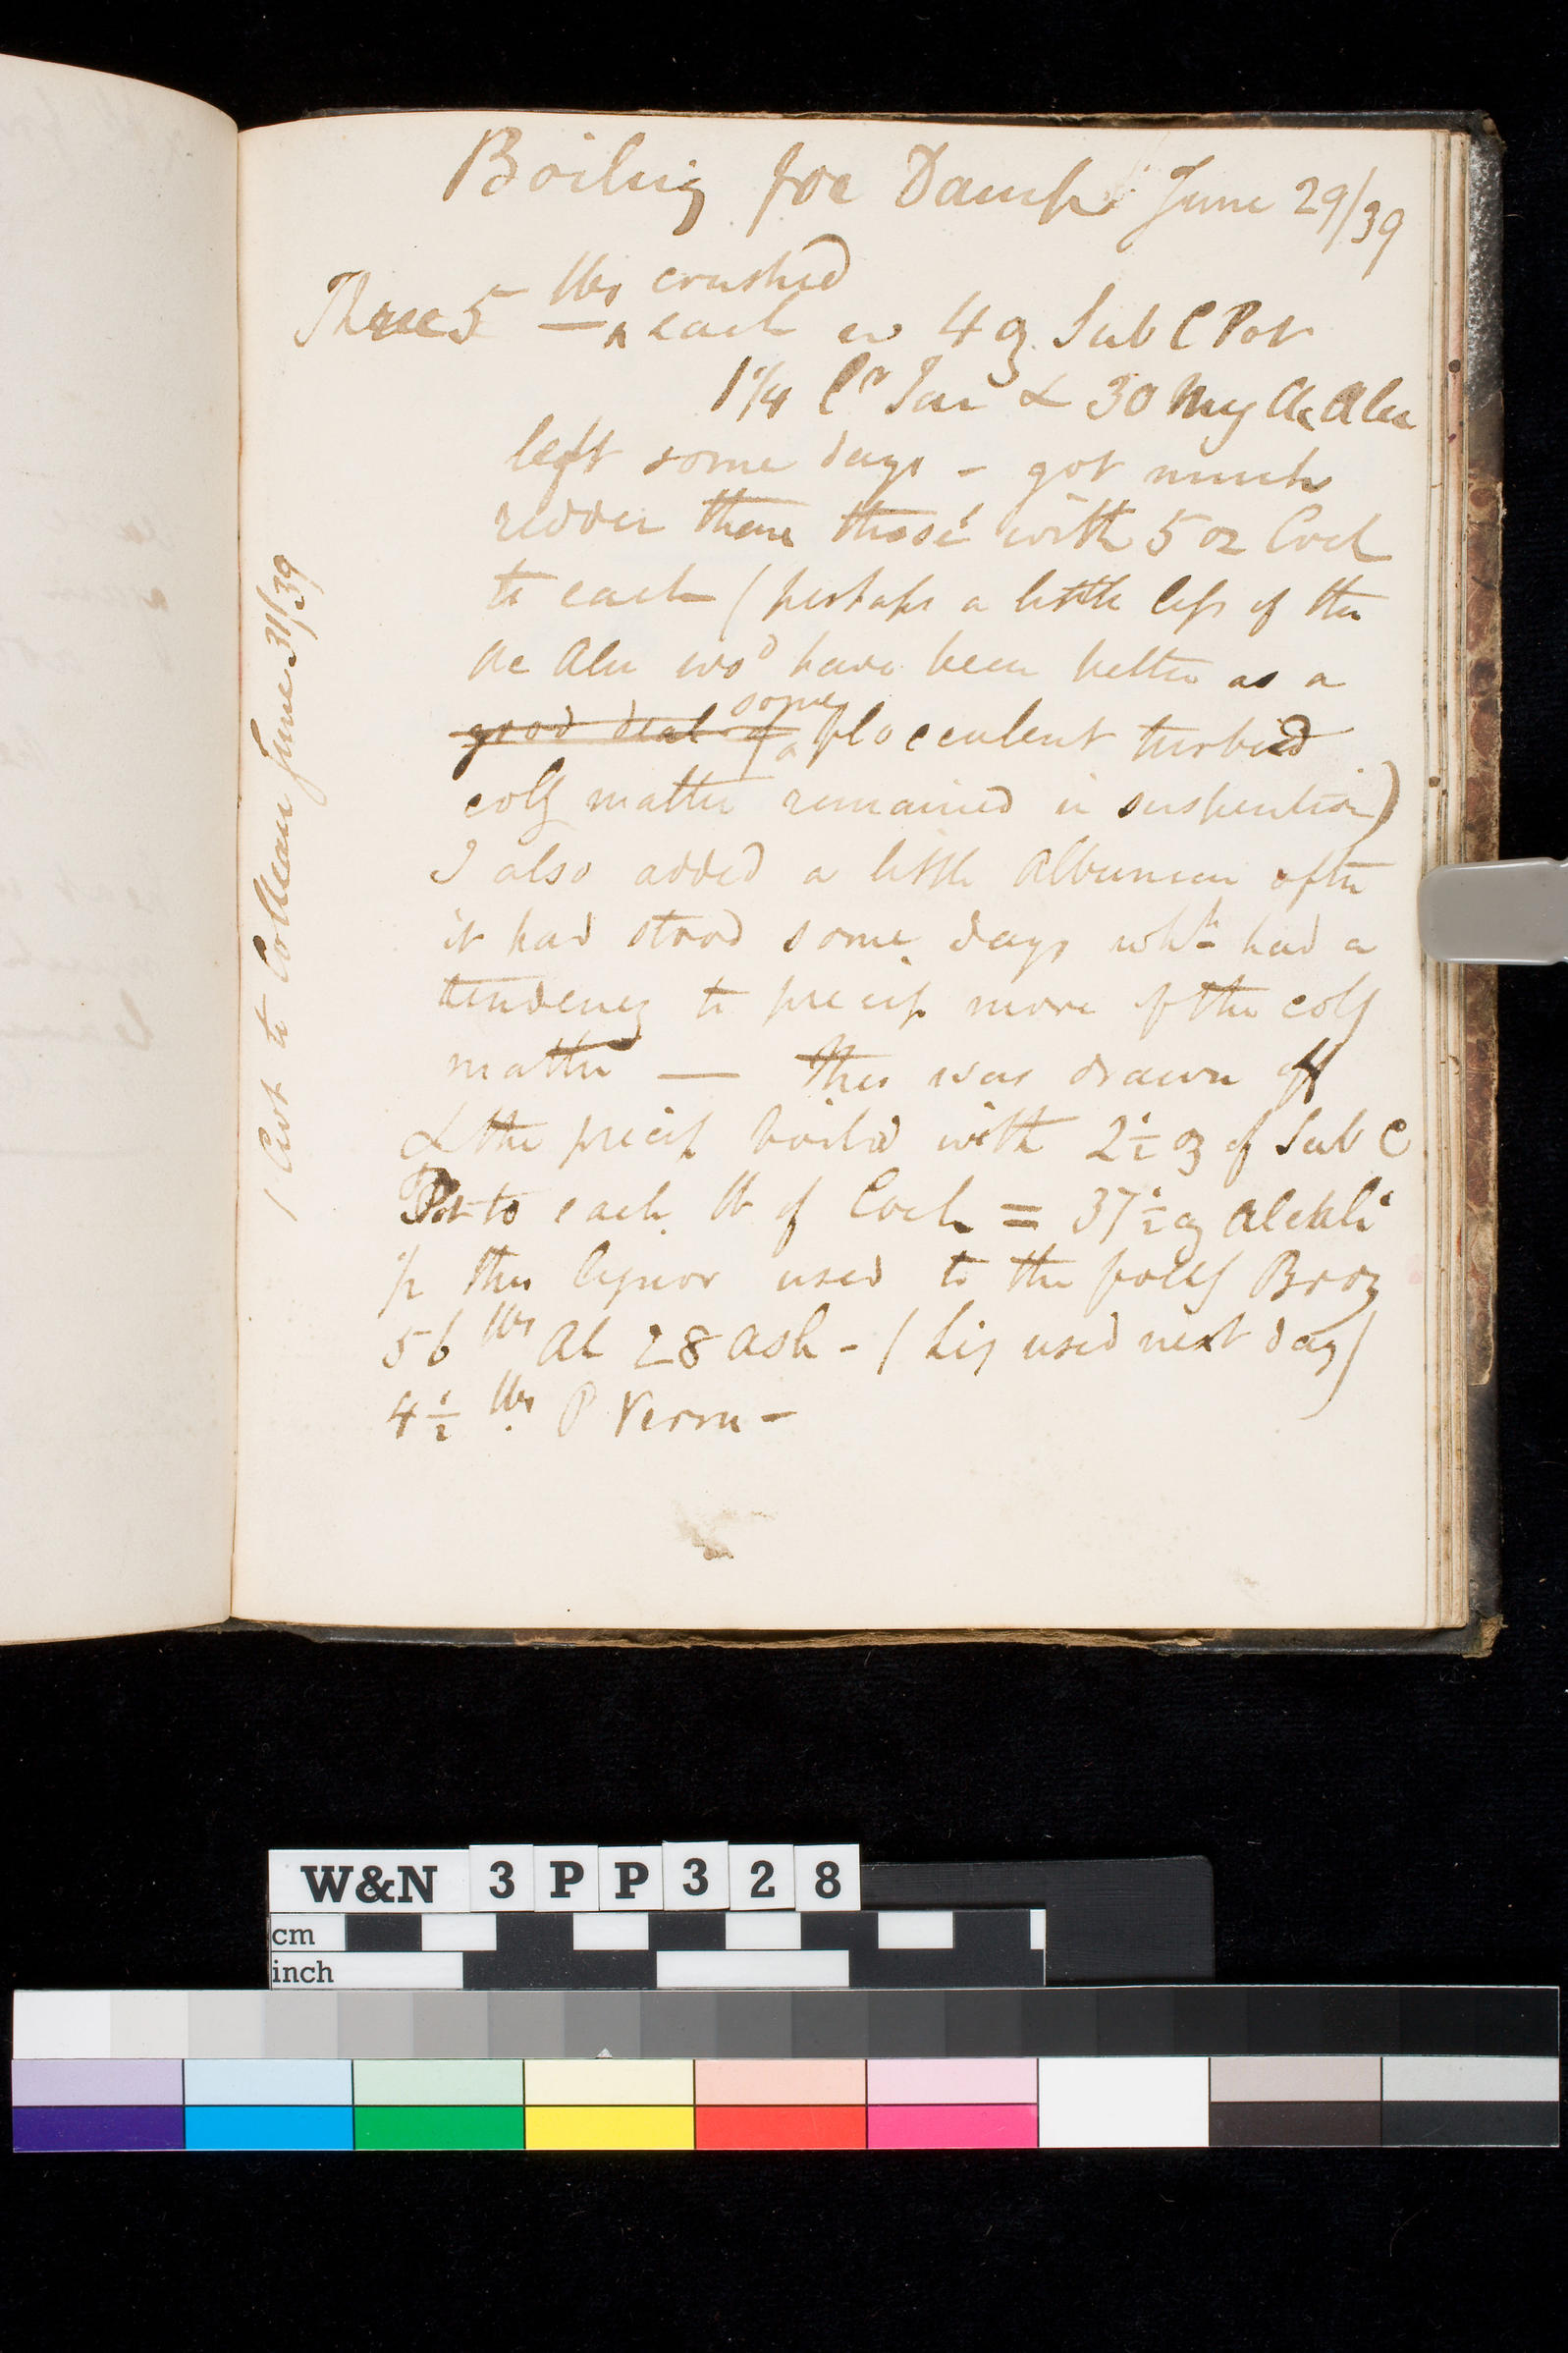 Boiling for Damp June 29/39
lbs crushed
Three 5 — ^ each w 4 oz Sub C Pot
1 1/4 Cr Tar & 30 Mg Ac Alu
left some days - got much
redder than those with 5 oz Coch
to each (perhaps a little less of the
Ac Alu wod have been better as a
some
good deal of a flocculent turbid
colg matter remained in suspention)
I also added a little Albumen after
it had stood some days whh had a
tendency to precip more of the colg
matter — This was drawn off
& the precip boild with 2 1/2 oz of Sub C
Pot to each lb of Coch = 37 1/2 oz Alkali
this liquor used to the follg
56 lbs Al 28 Ash - (Liq used next day)
4 1/2 lbs P Verm -
1 Cwt to Collean June 31/39
W&N 3PP328
cm
inch